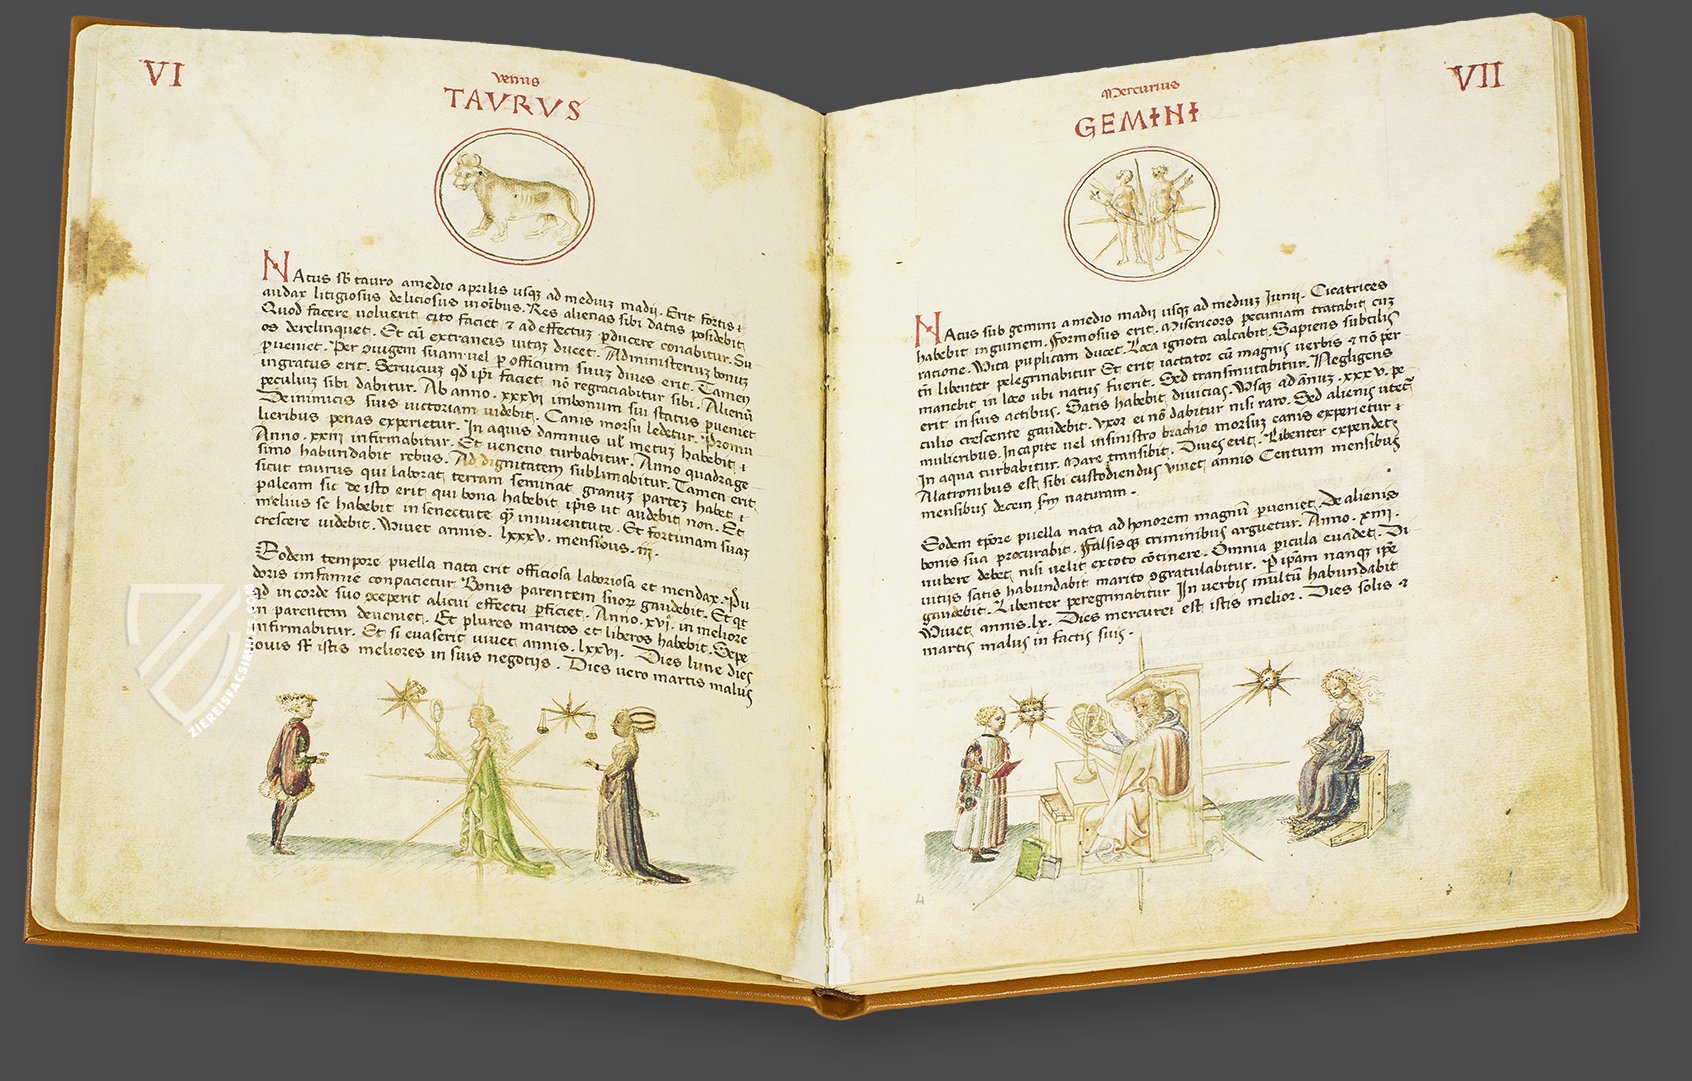 VI
Venus
TAVRVS
NAtus sb tauro amedio aprilis usqz ad mediuz madii. Erit fortis ⁊
audax litigiosus deliciosus in oibus. Res alienas sibi datas posidebit
Quod facere uoluerit cito faciet ⁊ ad effectuz pducere conabitur. Su
os derelinquet. Et cū extraneis uitaz ducet. Administeriuz bonuz
pueniet. Per ꝯiugem suam uel p officium suuz diues erit. Tamen
ingratus erit. Seruicuz qd ipi faciet nō regraciabitur sibi. Alienū
peculiuz sibi dabitur. Ab anno. xxxvi imbonum sui status pueniet
Deinimicis suis uictoriam uidebit. Canis morsu ledetur. Promu
lieribus penas experietur. In aquis damnus ul metuz habebit ⁊
Anno. xxiii infirmabitur. Et ueneno turbabitur. Anno quadrage
simo habundabit rebus. Ad dignitatem sublimabitur. Tamen erit
sicut taurus qui laborat terram seminat granuz partez habet ⁊
paleam sic de isto erit qui bona habebit ipis ut audebit non. Et
melius se habebit in senectute qz iniuuentute. Et fortunam suaz
crescere uidebit. Viuet annis. lxxxv. mensibus. iii.
Eodem tempore puella nata erit officiosa laboriosa et mendax. Pu
doris infamie conpacietur Bonis parentem suorz gaudebit. Et qt
qd in corde suo ꝯceperit alicui effectu pficiet. Anno. xvi. in meliore
in parentem deueniet. Et plures maritos et liberos habebit. Sepe
infirmabitur. Et si euaserit uiuet annis. lxxvi. Dies lune dies
iouis sr istis meliores in suis negotijs. Dies uero martis malus
ZIEREISFACSIMILES.COM
VII
Mercurius
GEMINI
NAtus sub gemini amedio madii usqz ad mediuz Iunii. Cicatrices
habebit inguinem. Formosus erit. Misericors pecuniam tratabit cuz
ratione. Vita puplicam ducet. Loca ignota calcabit. Sapiens subtilis
tn̄ libenter pelegrinabitur Et erit iactator cū magnis uerbis ⁊ nō per
manebit in loco ubi natus fuerit. Sed transmutabitur. Negligens
erit in suis actibus. Satis habebit diuicias. Vsqz ad ānuz. xxxv. pe
culio crescente gaudebit. Vxor ei nō dabitur nisi raro. Sed alienis utet
mulieribus. Incapite uel insinistro brachio morsuz canis experietur ⁊
In aqua turbabitur. Mare transibit. Diues erit. Libenter expendet
Alatronibus est sibi custodiendus uiuet annis Centum mensibus
mensibus decem sm naturam.
Eodem tpore puella nata ad honorem magnū pueniet. De alienis
bonis sua procurabit. Falsisqz criminibus arguetur. Anno. xiiii.
nubere debet nisi uelit extoto cōtinere. Omnia picula euadet. Di
uitijs satis habundabit marito ꝯgratulabitur. Pipam nanqz ipse
gaudebit. Libenter peregrinabitur In uerbis multū habundabit
Viuet annis. lx. Dies mercurei est istis melior. Dies solis ⁊
martis malus in factis suis.